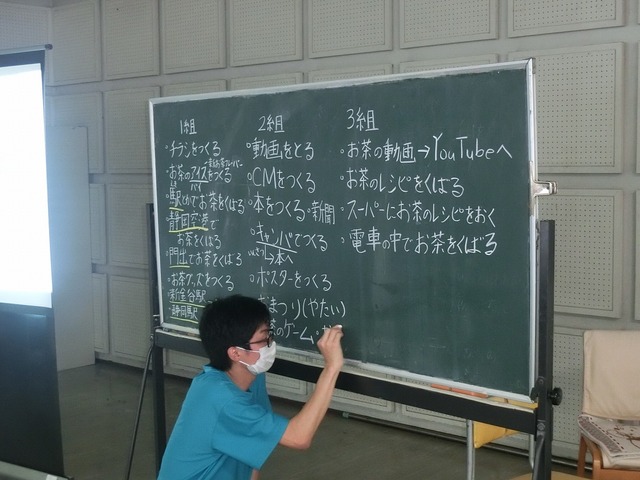 1組
・チラシをつくる
・お茶のアイスをつくる
・駅とかでお茶をくばる
・静岡空港で
お茶をくばる
・門出でお茶をくばる
・お茶グッズをつくる
新金谷駅
・静岡駅
2組
・動画をとる
・CMをつくる
・本をつくる・新聞
・キャンバでつくる
本へ
・ポスターをつくる
まつり(やたい)
茶のゲーム・
3組
・お茶の動画→YouTubeへ
・お茶のレシピをくばる
・スーパーにお茶のレシピをおく
・電車の中でお茶をくばる